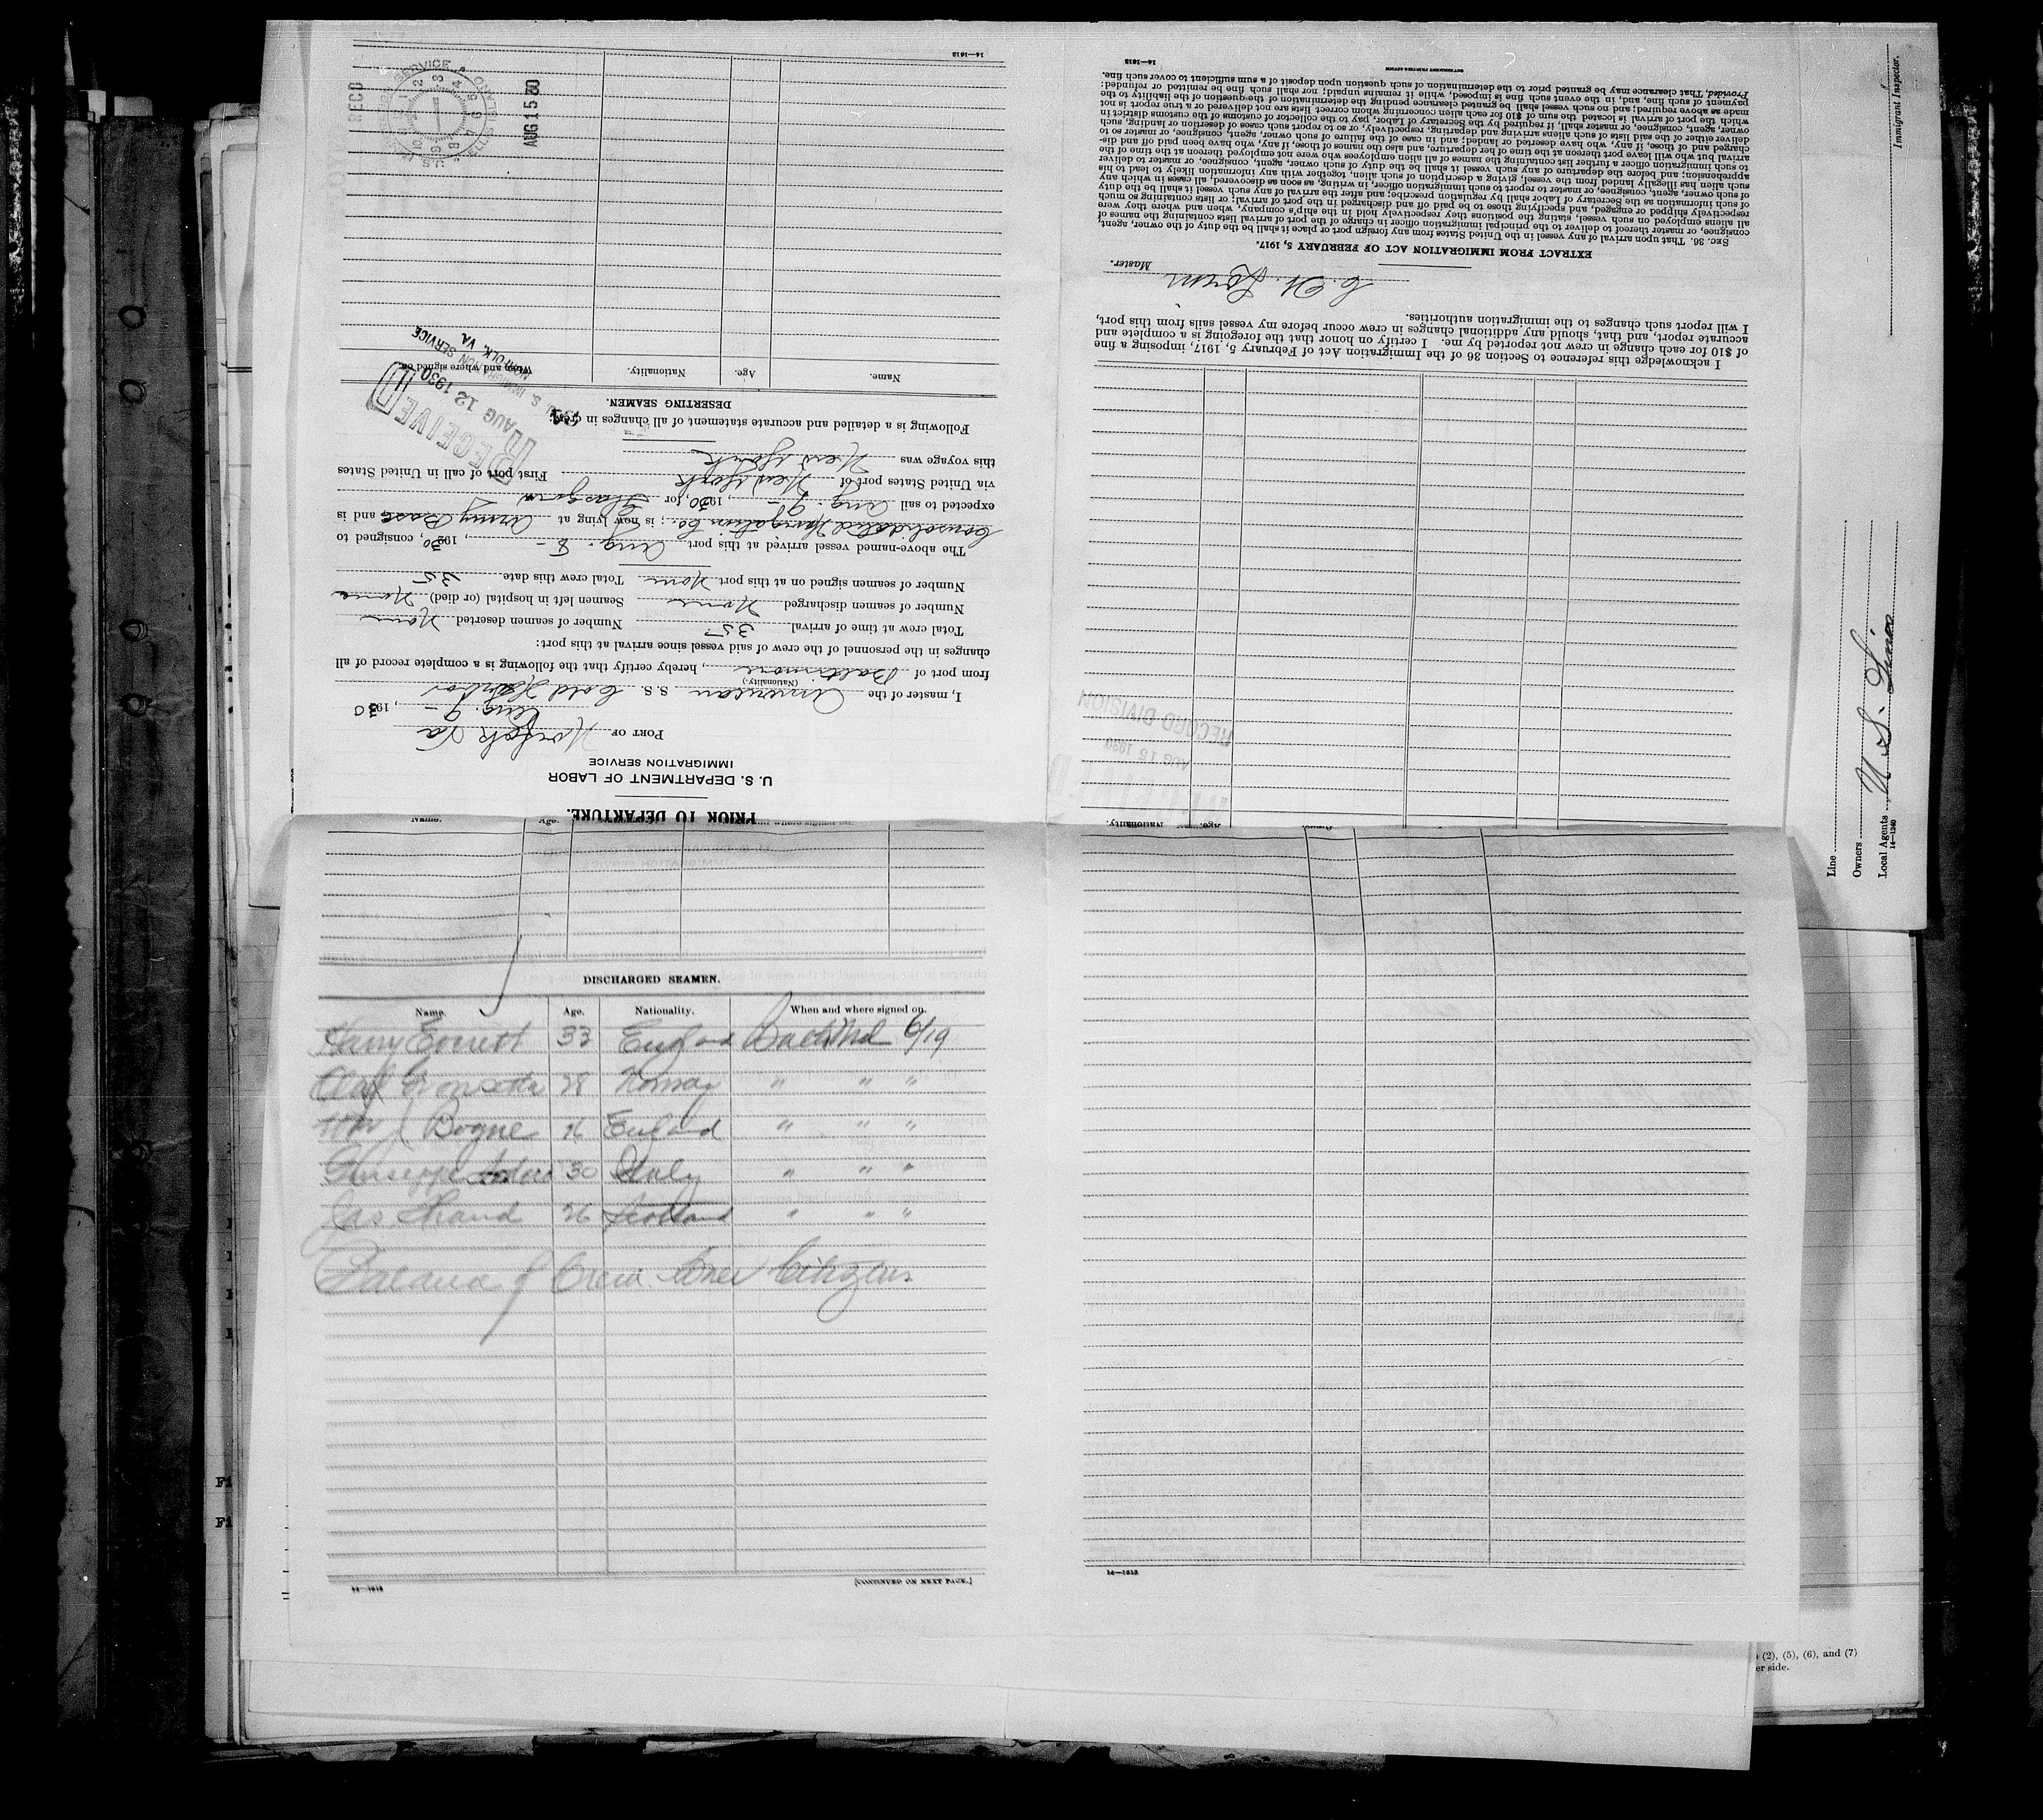 PRIOR TO DEPARTURE.
U. S. DEPARTMENT OF LABOR
IMMIGRATION SERVICE
PORT OF Norfolk Va
Aug. 9 - , 1930
I, master of the American S. S. Cold Harbor
(Nationality.)
from port of Baltimore , hereby certify that the following is a complete record of all
changes in the personnel of the crew of said vessel since arrival at this port:
Total crew at time of arrival 35 Number of seamen deserted None
Number of seamen discharged None Seamen left in hospital (or died) None
Number of seamen signed on at this port None Total crew this date 35
The above-named vessel arrived at this port Aug. 8 - , 1930, consigned to
Consolidated Navigation Co. ; is now lying at Army Base and is
expected to sail Aug. 9 - , 1930, for Glasgow
via United States port of New York First port of call in United States
this voyage was New York
Following is a detailed and accurate statement of all changes in crew:
DESERTING SEAMEN.
Name. Age. Nationality. When and where signed on.
RECEIVED
AUG 12 1930
U. S. IMMIGRATION SERVICE
NORFOLK, VA.
AUG 15 30
RECD
U.S. IMMIGRATION SERVICE ELLIS ISLAND
14—1613
Name. Age. Nationality.
RECEIVED
AUG 15 1930
RECORD DIVISION
I acknowledge this reference to Section 36 of the Immigration Act of February 5, 1917, imposing a fine
of $10 for each change in crew not reported by me. I certify on honor that the foregoing is a complete and
accurate report, and that, should any additional changes in crew occur before my vessel sails from this port,
I will report such changes to the immigration authorities.
Master.
EXTRACT FROM IMMIGRATION ACT OF FEBRUARY 5, 1917.
SEC. 36. That upon arrival of any vessel in the United States from any foreign port or place it shall be the duty of the owner, agent,
consignee, or master thereof to deliver to the principal immigration officer in charge of the port of arrival lists containing the names of
all aliens employed on such vessel, stating the positions they respectively hold in the ship's company, when and where they were
respectively shipped or engaged, and specifying those to be paid off and discharged in the port of arrival; or lists containing so much
of such information as the Secretary of Labor shall by regulation prescribe; and after the arrival of any such vessel it shall be the duty
of such owner, agent, consignee, or master to report to such immigration officer, in writing, as soon as discovered, all cases in which any
such alien has illegally landed from the vessel, giving a description of such alien, together with any information likely to lead to his
apprehension; and before the departure of any such vessel it shall be the duty of such owner, agent, consignee, or master to deliver
to such immigration officer a further list containing the names of all alien employees who were not employed thereon at the time of the
arrival but who will leave port thereon at the time of her departure, and also the names of those, if any, who have been paid off and dis-
charged and of those, if any, who have deserted or landed; and in case of the failure of such owner, agent, consignee, or master so to
deliver either of the said lists of such aliens arriving and departing, respectively, or so to report such cases of desertion or landing, such
owner, agent, consignee, or master, shall, if required by the Secretary of Labor, pay to the collector of customs of the customs district in
which the port of arrival is located the sum of $10 for each alien concerning whom correct lists are not delivered or a true report is not
made as above required; and no such vessel shall be granted clearance pending the determination of the question of the liability to the
payment of such fine, and, in the event such fine is imposed, while it remains unpaid; nor shall such fine be remitted or refunded:
Provided, That clearance may be granted prior to the determination of such question upon deposit of a sum sufficient to cover such fine.
GOVERNMENT PRINTING OFFICE
14—1613
Immigrant Inspector.
Line
Owners
Local Agents U. S. Lines
14—1240
Name. Age.
DISCHARGED SEAMEN.
Name. Age. Nationality. When and where signed on.
Harry Everett 33 England Balto Md 6/19
Olaf 28 Norway " " "
Wm Bogue 26 England " " "
Guiseppe 30 Italy " " "
Jas Shand 26 Scotland " " "
Balance of Crew Citizens
14—1613
[CONTINUED ON NEXT PAGE.]
14—1613
(2), (5), (6), and (7)
er side.